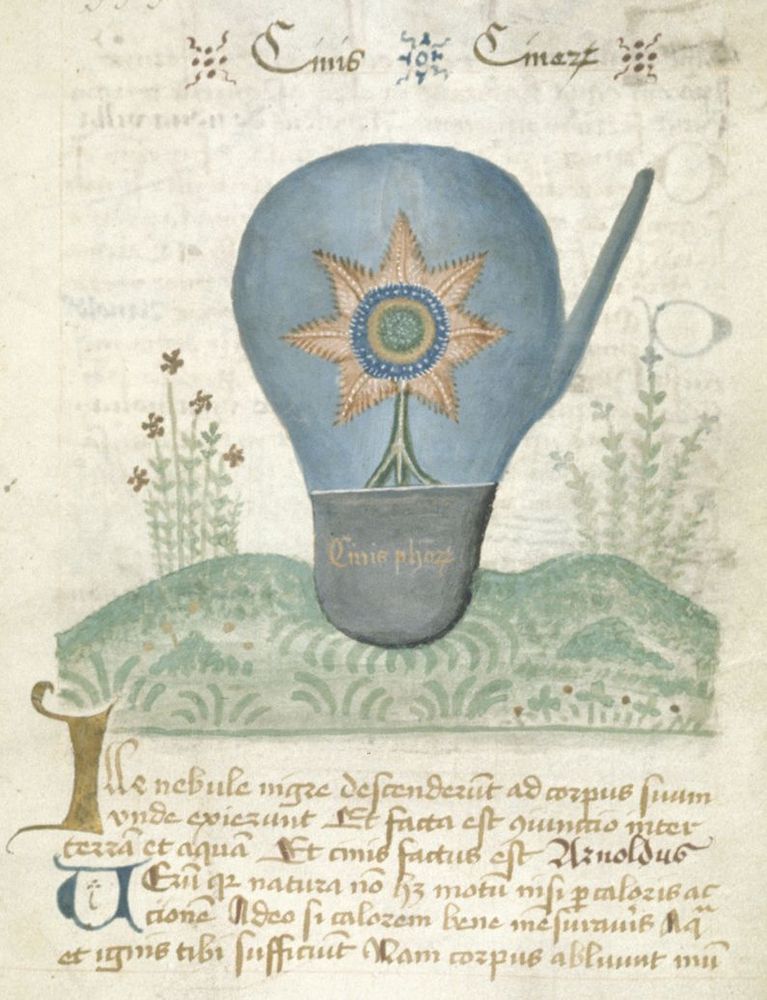 Cinis Cinerꝝ
Cinis ph̄orꝝ
Ille nebule nigre descenderūt ad corpus suum
vnde exierunt Et facta est ꝯiunctio inter
terrā et aquā Et cinis factus est Arnoldus
Uerū qꝛ natura nō hꝫ motū nisi ꝑ caloris ac
cionē Adeo si calorem bene mēsurauīs Aqᵃ
et ignis tibi sufficiūt Nam corpus abluunt